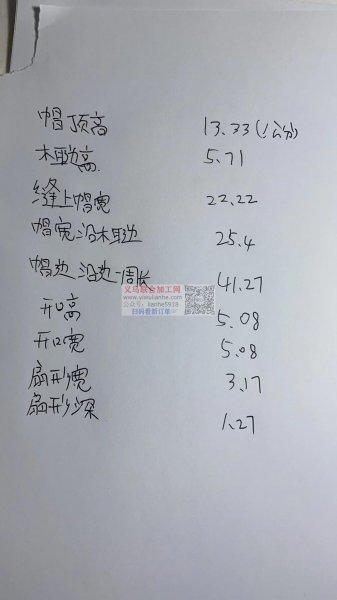 帽顶高 13.33(公分)
木耳边高 5.71
缝上帽宽 22.22
帽宽沿木耳边 25.4
帽边沿边一周长 41.27
开口高 5.08
义乌联合加工网
www.yiwulianhe.com
公众号：lianhe5918
扫码看新订单
开口宽 5.08
扇形宽 3.17
扇形深 1.27